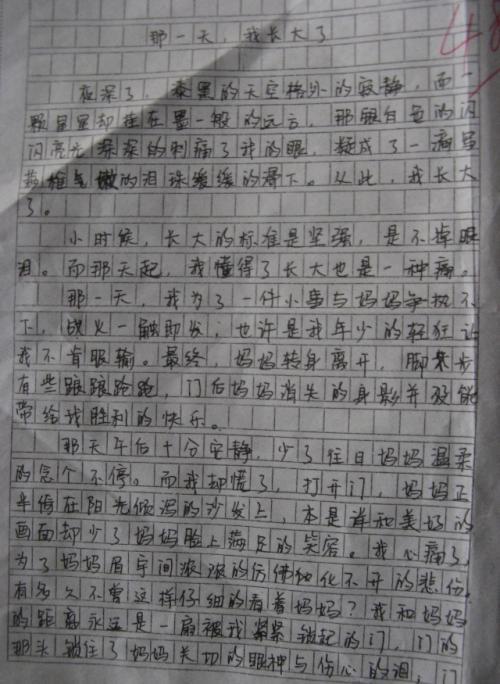 那一天，我长大了
48
夜深了，漆黑的天空格外的寂静，而一
颗星星却挂在墨一般的远方，那银白色的闪
闪亮光深深的刺痛了我的眼，凝成了一滴
的泪珠缓缓的滑下。从此，我长大
了。
小时候，长大的标准是坚强，是不掉眼
泪。而那天起，我懂得了长大也是一种痛。
那一天，我为了一件小事与妈妈争执不
下，战火一触即发；也许是我年少的轻狂让
我不肯服输。最终，妈妈转身离开，脚步
有些踉踉跄跄，门后妈妈消失的身影并没能
带给我胜利的快乐。
那天午后十分安静，少了往日妈妈温柔
的念个不停。而我却慌了，打开门，妈妈正
半倚在阳光倾泻的沙发上，本是祥和美好的
画面却少了妈妈脸上满足的笑容。我心痛了，
为了妈妈眉宇间浓浓的仿佛化不开的悲伤。
有多久不曾这样仔细的看着妈妈？我和妈妈
的距离永远是一扇被我紧紧锁起的门，门的
那头锁住了妈妈关切的眼神与伤心的泪，门